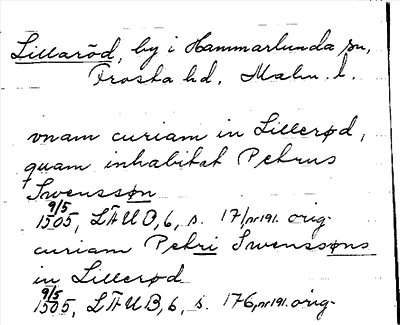 Lillaröd, by i Hammarlunda sn,
Frosta hd, Malm. l.
vnam curiam in Lillerød,
quam inhabitat Petrus
Swensson
9/5 1505, LÄUB, 6, s. 171, nr 191. orig.
curiam Petri Swenssøns
in Lillerød
9/5 1505, LÄUB, 6, s. 176, nr 191. orig.